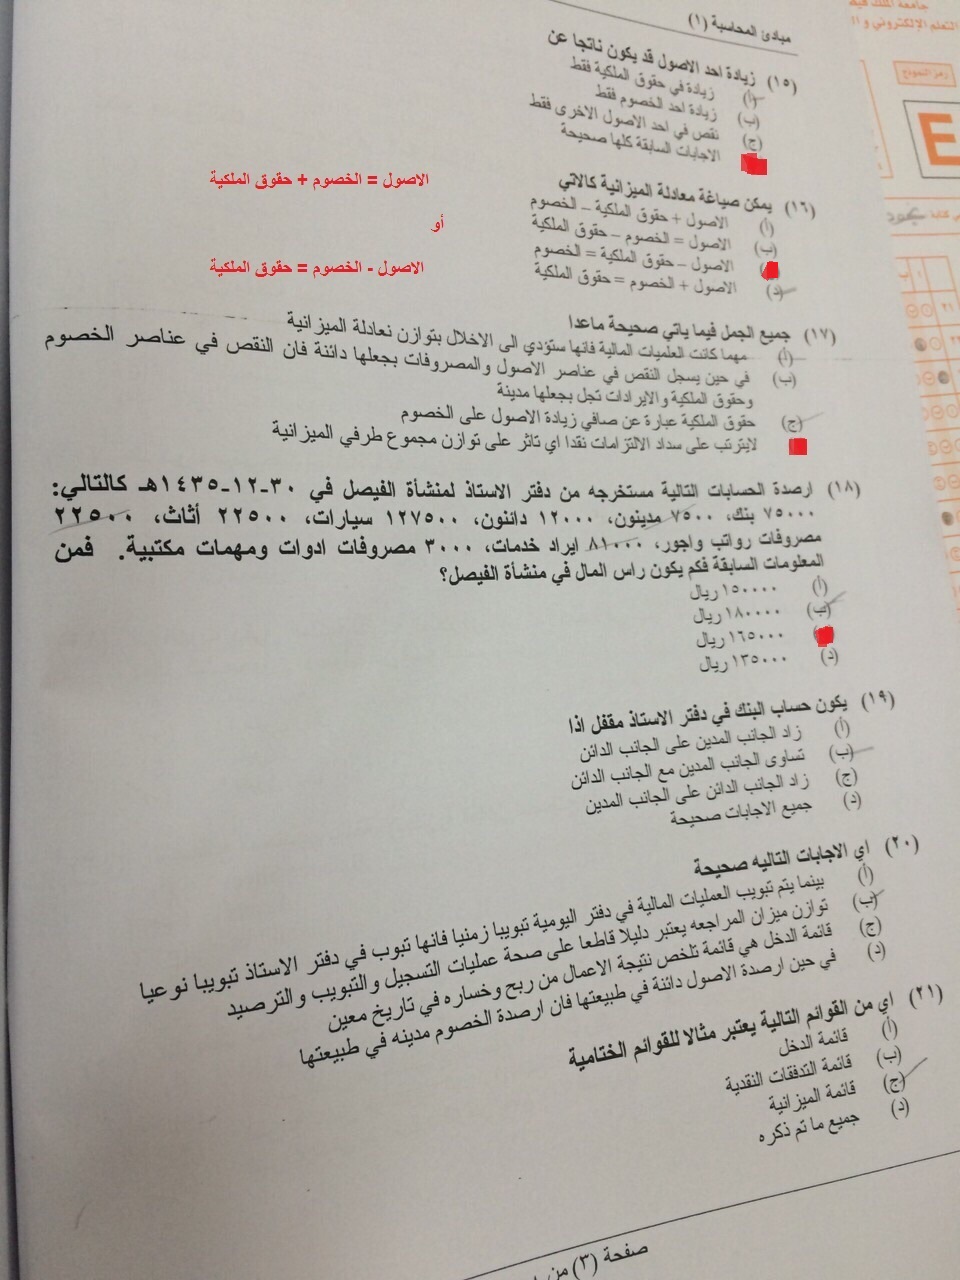 جامعة الملك فيصل
التعلم الإلكتروني و
رمز النموذج
E
مبادئ المحاسبة (١)
(١٥) زيادة احد الاصول قد يكون ناتجا عن
(أ) زيادة في حقوق الملكية فقط
(ب) زيادة احد الخصوم فقط
(ج) نقص في احد الاصول الاخرى فقط
الاجابات السابقة كلها صحيحة
الاصول = الخصوم + حقوق الملكية
أو
الاصول - الخصوم = حقوق الملكية
(١٦) يمكن صياغة معادلة الميزانية كالاتي
(أ) الاصول + حقوق الملكية – الخصوم
(ب) الاصول = الخصوم – حقوق الملكية
الاصول – حقوق الملكية = الخصوم
(د) الاصول + الخصوم = حقوق الملكية
(١٧) جميع الجمل فيما ياتي صحيحة ماعدا
(أ) مهما كانت العلميات المالية فانها ستؤدي الى الاخلال بتوازن نعادلة الميزانية
(ب) في حين يسجل النقص في عناصر الاصول والمصروفات بجعلها دائنة فان النقص في عناصر الخصوم
وحقوق الملكية والايرادات تجل بجعلها مدينة
(ج) حقوق الملكية عبارة عن صافي زيادة الاصول على الخصوم
لايترتب على سداد الالتزامات نقدا اي تاثر على توازن مجموع طرفي الميزانية
(١٨) ارصدة الحسابات التالية مستخرجه من دفتر الاستاذ لمنشأة الفيصل في ٣٠-١٢-١٤٣٥هـ كالتالي:
٧٥٠٠٠ بنك، ٧٥٠٠ مدينون، ١٢٠٠٠ دائنون، ١٢٧٥٠٠ سيارات، ٢٢٥٠٠ أثاث، ٢٢٥٠٠
مصروفات رواتب واجور، ٨١٠٠٠ ايراد خدمات، ٣٠٠٠ مصروفات ادوات ومهمات مكتبية. فمن
المعلومات السابقة فكم يكون راس المال في منشأة الفيصل؟
(أ) ١٥٠٠٠٠ ريال
(ب) ١٨٠٠٠٠ ريال
١٦٥٠٠٠ ريال
(د) ١٣٥٠٠٠ ريال
(١٩) يكون حساب البنك في دفتر الاستاذ مقفل اذا
(أ) زاد الجانب المدين على الجانب الدائن
(ب) تساوى الجانب المدين مع الجانب الدائن
(ج) زاد الجانب الدائن على الجانب المدين
(د) جميع الاجابات صحيحة
(٢٠) اي الاجابات التاليه صحيحة
(أ) بينما يتم تبويب العمليات المالية في دفتر اليومية تبويبا زمنيا فانها تبوب في دفتر الاستاذ تبويبا نوعيا
(ب) توازن ميزان المراجعه يعتبر دليلا قاطعا على صحة عمليات التسجيل والتبويب والترصيد
(ج) قائمة الدخل هي قائمة تلخص نتيجة الاعمال من ربح وخساره في تاريخ معين
(د) في حين ارصدة الاصول دائنة في طبيعتها فان ارصدة الخصوم مدينه في طبيعتها
(٢١) اي من القوائم التالية يعتبر مثالا للقوائم الختامية
(أ) قائمة الدخل
(ب) قائمة التدفقات النقدية
(ج) قائمة الميزانية
(د) جميع ما تم ذكره
صفحة (٣) من